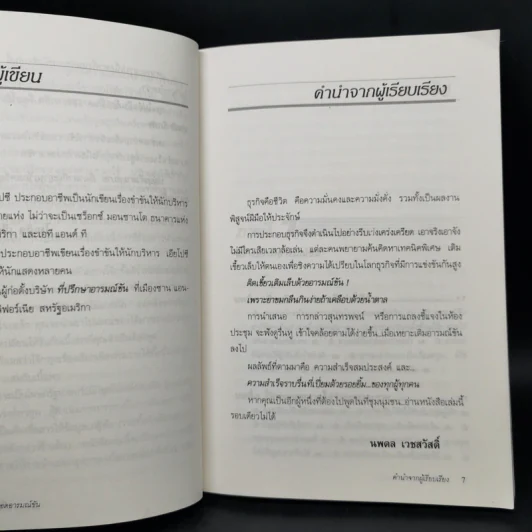 ผู้เขียน
ประกอบอาชีพเป็นนักเขียนเรื่องขำขันให้นักบริหาร
ไม่ว่าจะเป็นเซร็อกซ์ มอนซานโต ธนาคารแห่ง
และเอที แอนด์ ที
ประกอบอาชีพเขียนเรื่องขำขันให้นักบริหาร เอียไปซี
ให้นักแสดงหลายคน
ผู้ก่อตั้งบริษัท ที่ปรึกษาอารมณ์ขัน ที่เมืองซาน แอน-
สหรัฐอเมริกา
คำนำจากผู้เรียบเรียง
ธุรกิจคือชีวิต คือความมั่นคงและความมั่งคั่ง รวมทั้งเป็นผลงาน
พิสูจน์ฝีมือให้ประจักษ์
การประกอบธุรกิจจึงดำเนินไปอย่างรีบเร่งเคร่งเครียด เอาจริงเอาจัง
ไม่มีใครเสียเวลาล้อเล่น แต่ละคนพยายามค้นคิดหาเทคนิคพิเศษ เติม
เขี้ยวเล็บให้ตนเองเพื่อชิงความได้เปรียบในโลกธุรกิจที่มีการแข่งขันกันสูง
ติดเขี้ยวเติมเล็บด้วยอารมณ์ขัน !
เพราะยาขมกลืนกินง่ายถ้าเคลือบด้วยน้ำตาล
การนำเสนอ การกล่าวสุนทรพจน์ หรือการแถลงชี้แจงในห้อง
ประชุม จะฟังดูรื่นหู เข้าใจคล้อยตามได้ง่ายขึ้น..เมื่อเหยาะเติมอารมณ์ขัน
ลงไป
ผลลัพธ์ที่ตามมาคือ ความสำเร็จสมประสงค์ และ...
ความสำเร็จราบรื่นที่เปี่ยมด้วยรอยยิ้ม...ของทุกผู้ทุกคน
หากคุณเป็นอีกผู้หนึ่งที่ต้องไปพูดในที่ชุมนุมชน...อ่านหนังสือเล่มนี้
รอบเดียวไม่ได้
นพดล เวชสวัสดิ์
คำนำจากผู้เรียบเรียง 7